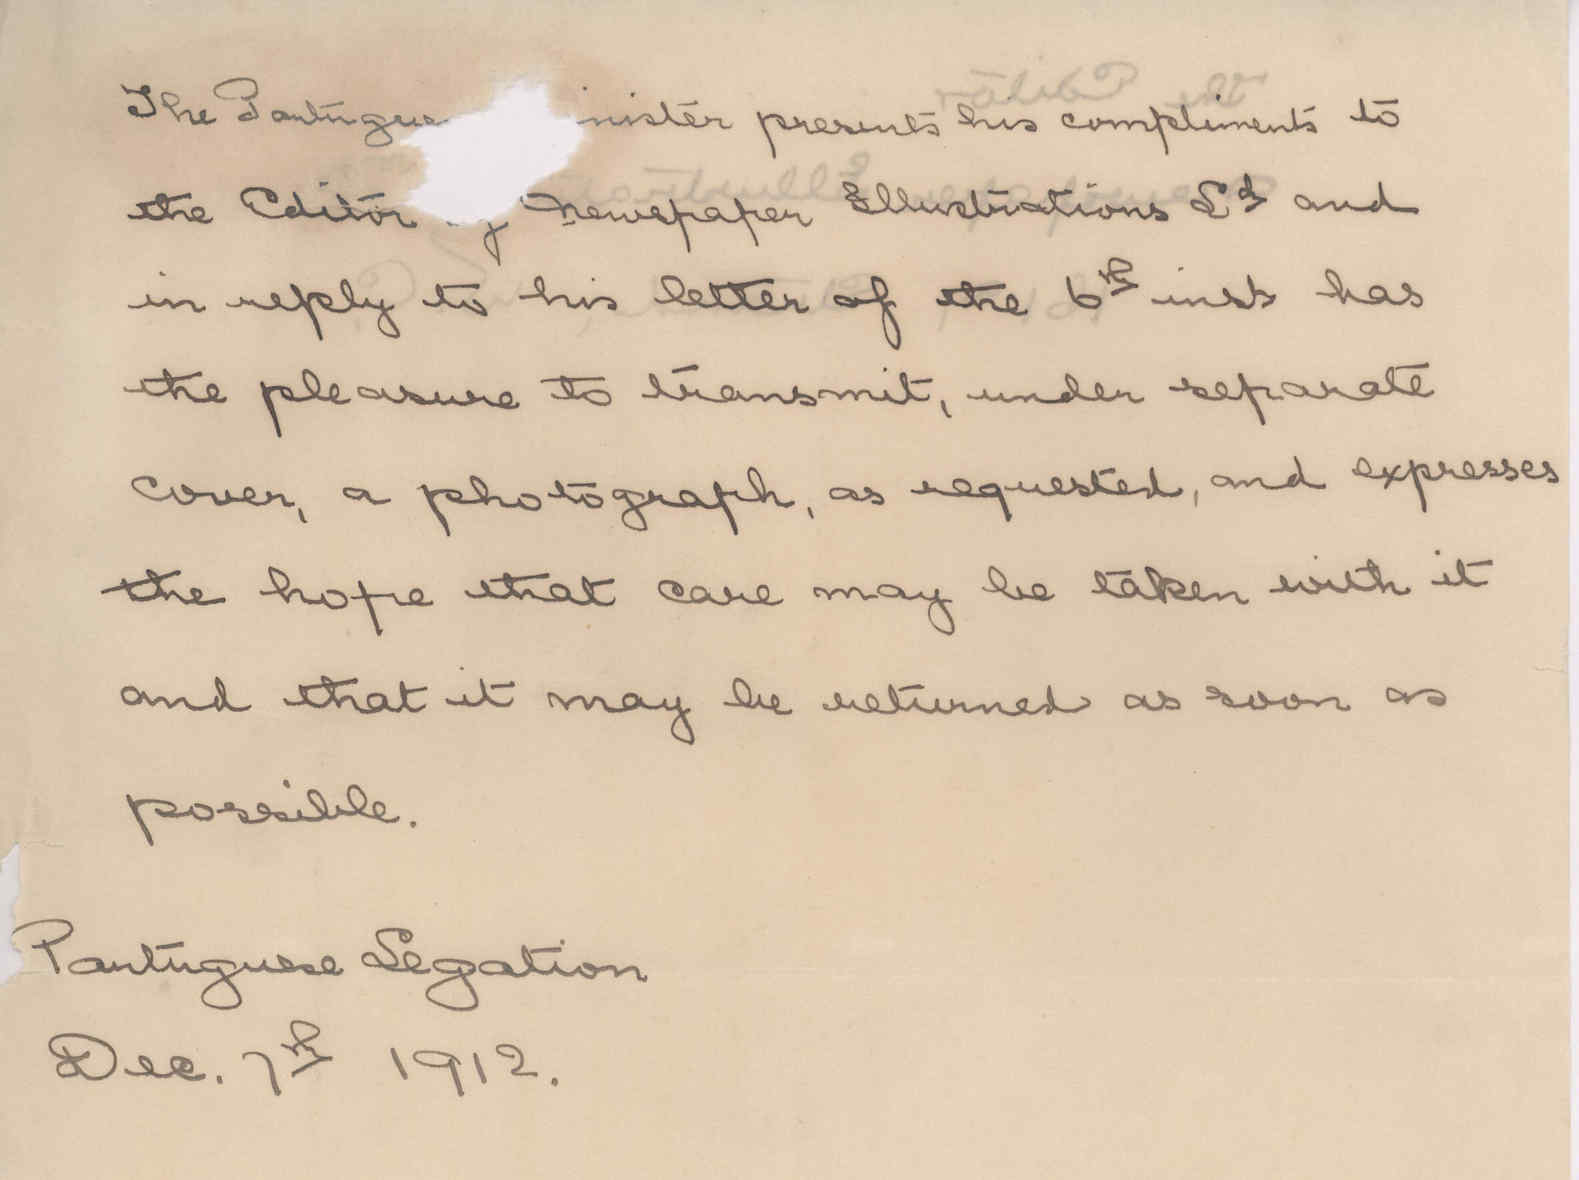 The Portugue inister presents his compliments to
the Editor of Newspaper Illustrations Ld and
in reply to his letter of the 6th inst has
the pleasure to transmit, under separate
cover, a photograph, as requested, and expresses
the hope that care may be taken with it
and that it may be returned as soon as
possible.
Portuguese Legation
Dec. 7th 1912.